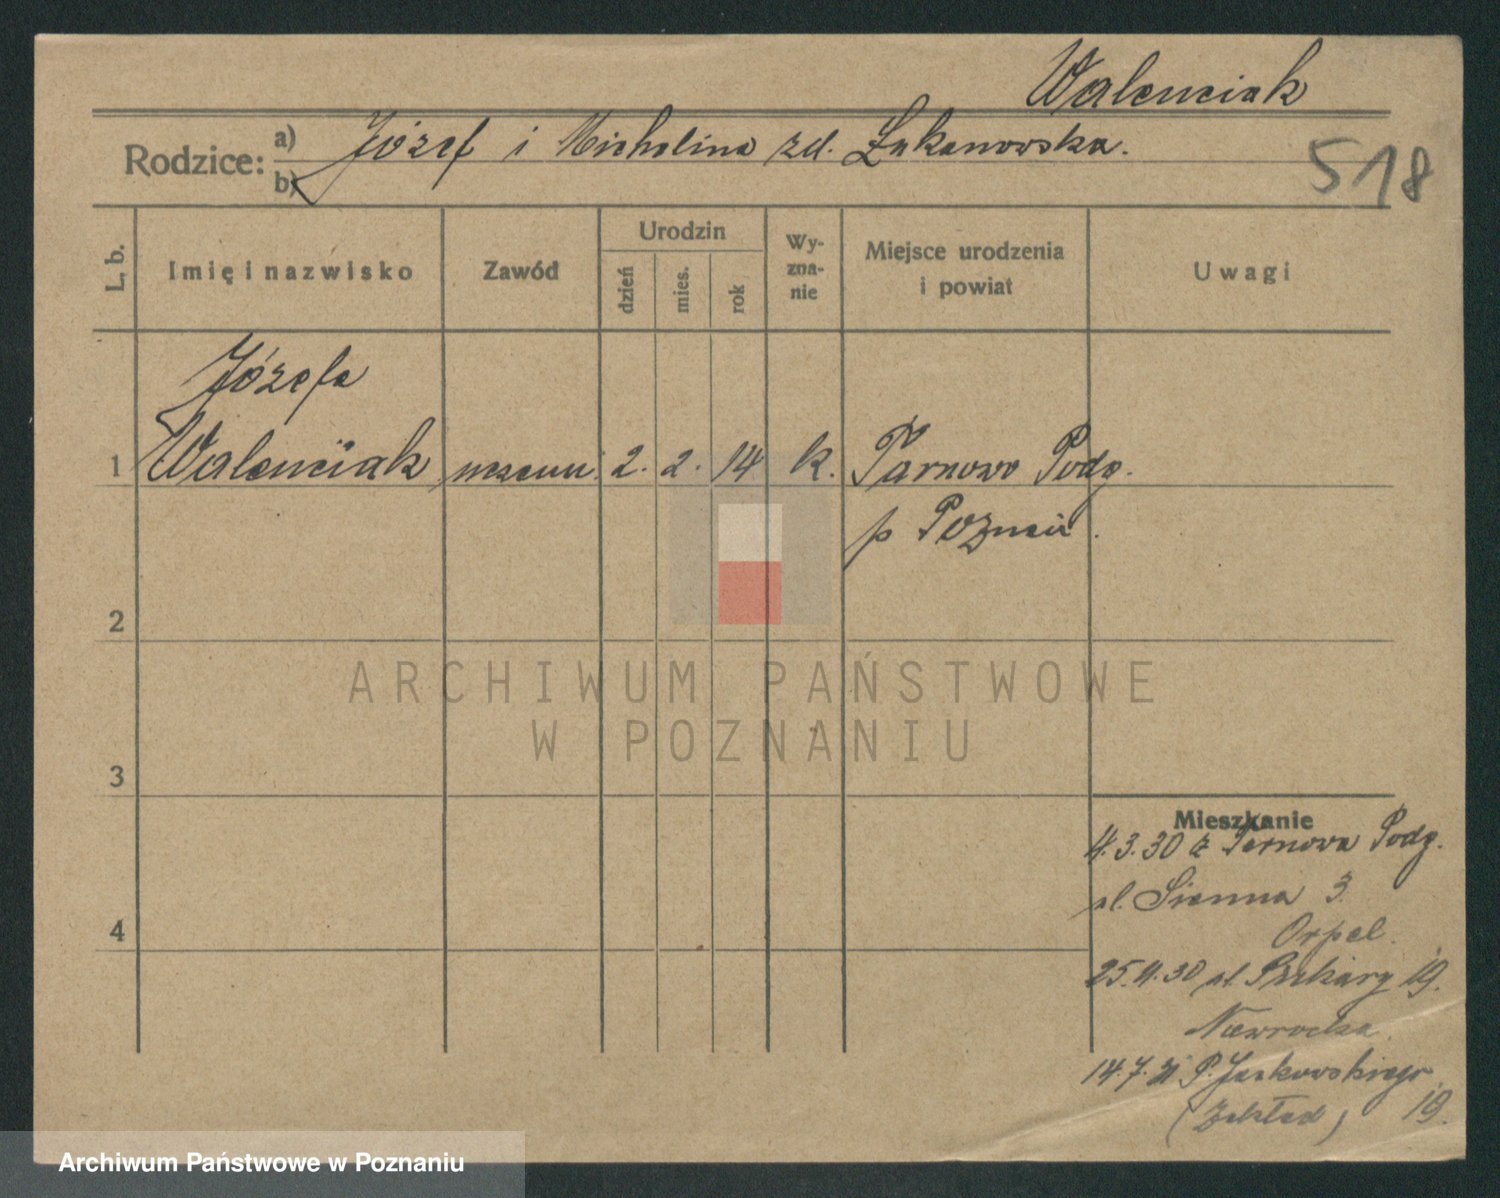 Walenciak
518
Rodzice:
a) Józef i Michalina zd. Łukanowska.
b)
L. b.
Imię i nazwisko
Zawód
Urodzin
dzień
mies.
rok
Wy-
zna-
nie
Miejsce urodzenia
i powiat
Uwagi
Józefa
1 Walenciak 2. 2. 14 k. Tarnowo Podg.
p Poznań.
2
3
4
ARCHIWUM PAŃSTWOWE
W POZNANIU
Mieszkanie
4.3.30 z Tarnowa Podg.
ul. Sienna 3.
Orpel.
25.4.30 ul. Piekary 19.
Nawrocka
14.7.31 P. Jackowskiego
(Zakład) 19.
Archiwum Państwowe w Poznaniu